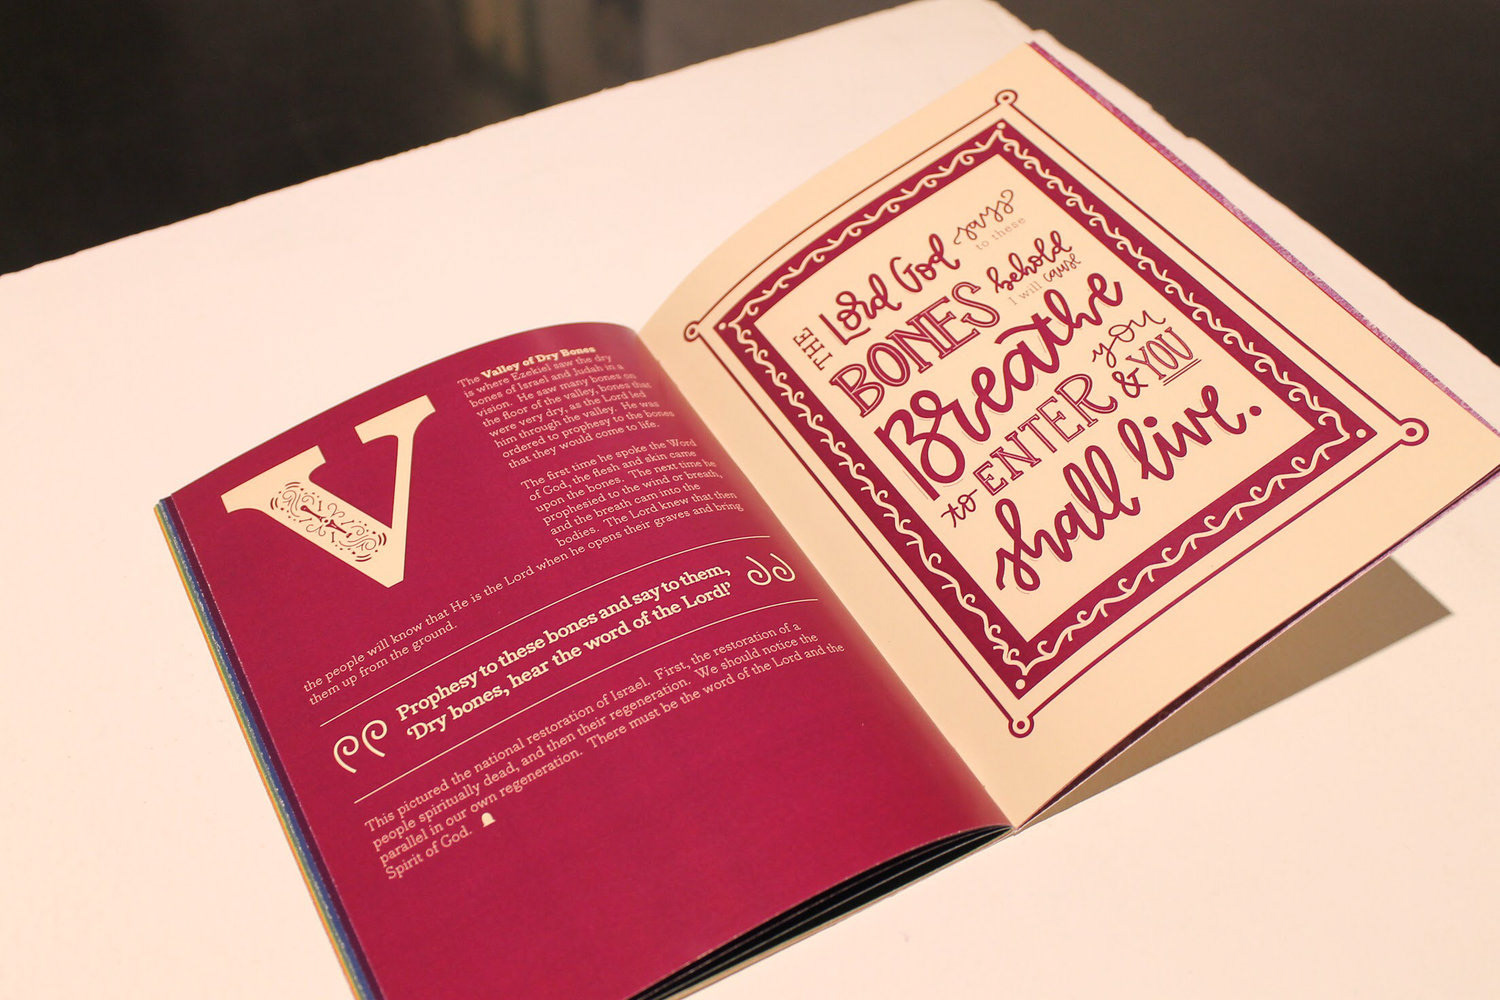 V
The Valley of Dry Bones
is where Ezekiel saw the dry
bones of Israel and Judah in a
vision. He saw many bones on
the floor of the valley, bones that
were very dry, as the Lord led
him through the valley. He was
ordered to prophesy to the bones
that they would come to life.
The first time he spoke the Word
of God, the flesh and skin came
upon the bones. The next time he
prophesied to the wind or breath,
and the breath cam into the
bodies. The Lord knew that then
the people will know that He is the Lord when he opens their graves and bring
them up from the ground.
Prophesy to these bones and say to them,
‘Dry bones, hear the word of the Lord!’
This pictured the national restoration of Israel. First, the restoration of a
people spiritually dead, and then their regeneration. We should notice the
parallel in our own regeneration. There must be the word of the Lord and the
Spirit of God.
THE Lord God says
to these
BONES behold
I will cause
Breathe
to ENTER you
& YOU
shall live.